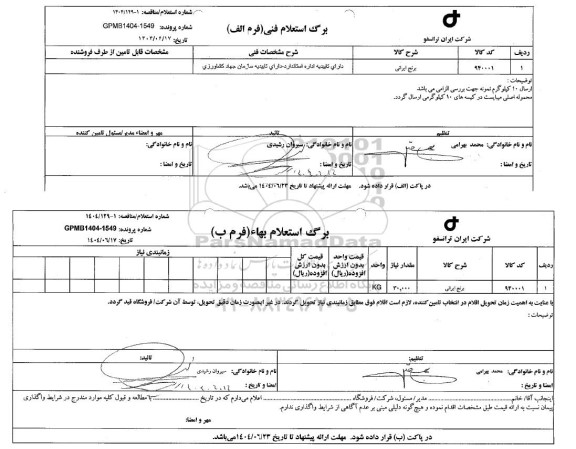 شماره استعلام/مناقصه: ۱۴۰۴/۱۲۹-۱
شماره پرونده: GPMB1404-1549
تاریخ: ۱۴۰۴/۰۶/۱۷
برگ استعلام فنی(فرم الف)
شرکت ایران ترانسفو
ردیف کد کالا شرح کالا شرح مشخصات فنی مشخصات قابل تامین از طرف فروشنده
۱ ۹۴۰۰۰۱ برنج ایرانی دارای تاییدیه اداره استاندارد-دارای تاییدیه سازمان جهاد کشاورزی
توضیحات :
ارسال ۱۰ کیلوگرم نمونه جهت بررسی الزامی می باشد
محموله اصلی میبایست در کیسه های ۱۰ کیلوگرمی ارسال گردد.
تنظیم تائید مهر و امضاء مدیر/مسئول تامین کننده
نام و نام خانوادگی: محمد بهرامی نام و نام خانوادگی: سیروان رشیدی نام و نام خانوادگی:
تاریخ و امضا : تاریخ و امضا : تاریخ و امضا :
در پاکت (الف) قرار داده شود. مهلت ارائه پیشنهاد تا تاریخ ۱۴۰۴/۰۶/۲۳ می‌باشد.
شماره استعلام/مناقصه: ۱۴۰۴/۱۲۹-۱
شماره پرونده: GPMB1404-1549
تاریخ: ۱۴۰۴/۰۶/۱۷
برگ استعلام بهاء(فرم ب)
شرکت ایران ترانسفو
ردیف کد کالا شرح کالا مقدار نیاز واحد قیمت واحد بدون ارزش افزوده(ریال) قیمت کل بدون ارزش افزوده(ریال) زمانبندی نیاز
۱ ۹۴۰۰۰۱ برنج ایرانی ۳۰,۰۰۰ KG
با عنایه به اهمیت زمان تحویل اقلام در انتخاب تامین کننده، لازم است اقلام فوق مطابق زمانبندی نیاز تحویل گردند. در غیر اینصورت زمان دقیق تحویل، توسط آن شرکت/ فروشگاه قید گردد.
توضیحات :
تنظیم: تائید:
نام و نام خانوادگی: محمد بهرامی نام و نام خانوادگی: سیروان رشیدی
تاریخ و امضا : امضا و تاریخ :
اینجانب آقا/ خانم مدیر/ مسئول، شرکت/ فروشگاه اعلام می‌دارم که در تاریخ با مطالعه و قبول کلیه موارد مندرج در شرایط واگذاری
پیمان نسبت به ارائه قیمت طبق مشخصات اقدام نموده و هیچ‌گونه دلیلی مبنی بر عدم آگاهی از شرایط واگذاری ندارم.
مهر و امضا:
در پاکت (ب) قرار داده شود. مهلت ارائه پیشنهاد تا تاریخ ۱۴۰۴/۰۶/۲۳می‌باشد.